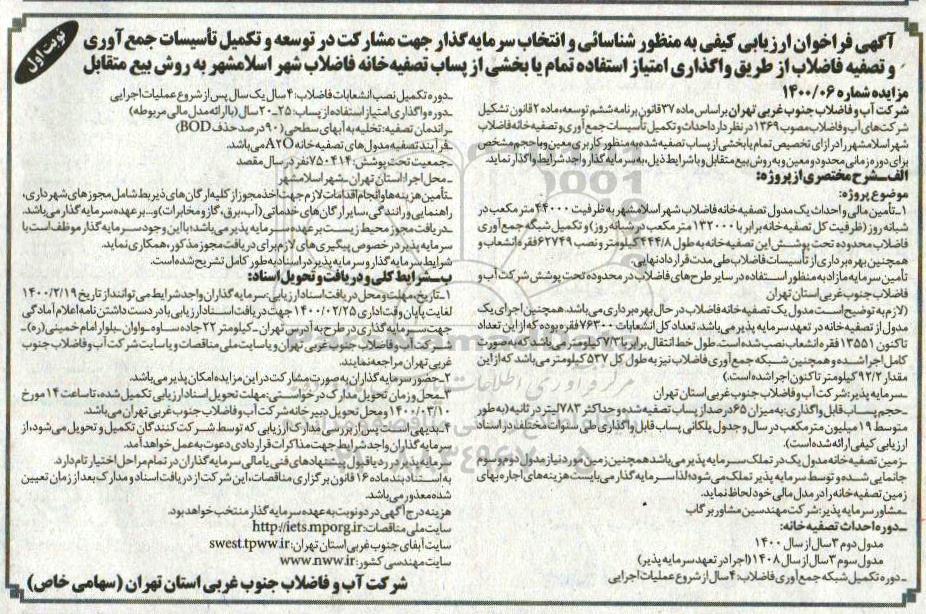 نوبت اول
آگهی فراخوان ارزیابی کیفی به منظور شناسائی و انتخاب سرمایه گذار جهت مشارکت در توسعه و تکمیل تأسیسات جمع آوری
و تصفیه فاضلاب از طریق واگذاری امتیاز استفاده تمام یا بخشی از پساب تصفیه خانه فاضلاب شهر اسلامشهر به روش بیع متقابل
مزایده شماره ۱۴۰۰/۰۶
شرکت آب و فاضلاب جنوب غربی تهران بر اساس ماده ۲۷ قانون برنامه ششم توسعه، ماده ۲ قانون تشکیل
شرکت های آب و فاضلاب مصوب ۱۳۶۹ در نظر دارد احداث و تکمیل تأسیسات جمع آوری و تصفیه خانه فاضلاب
شهر اسلامشهر را در ازای تخصیص تمام یا بخشی از پساب تصفیه شده به منظور کاربری معین و با حجم مشخص
برای دوره زمانی محدود و معین و به روش بیع متقابل و با شرایط ذیل، به سرمایه گذار واجد شرایط واگذار نماید.
الف_شرح مختصری از پروژه:
موضوع پروژه:
۱_تأمین مالی و احداث یک مدول تصفیه خانه فاضلاب شهر اسلامشهر به ظرفیت ۴۴۰۰۰ متر مکعب در
شبانه روز (ظرفیت کل تصفیه خانه برابر با ۱۳۲۰۰۰ متر مکعب در شبانه روز) و تکمیل شبکه جمع آوری
فاضلاب محدوده تحت پوشش این تصفیه خانه به طول ۴۴۴/۸ کیلومتر و نصب ۶۲۷۴۹ فقره انشعاب و
همچنین بهره برداری از تأسیسات فاضلاب طی مدت قرارداد نهایی.
تأمین سرمایه مازاد به منظور استفاده در سایر طرح های فاضلاب در محدوده تحت پوشش شرکت آب و
فاضلاب جنوب غربی استان تهران
(لازم به توضیح است مدول یک تصفیه خانه فاضلاب در حال بهره برداری می باشد. همچنین اجرای یک
مدول از تصفیه خانه در تعهد سرمایه پذیر می باشد. تعداد کل انشعابات ۷۶۳۰۰ فقره بوده که از این تعداد
تاکنون ۱۳۵۵۱ فقره انشعاب نصب شده است. طول خط انتقال برابر با ۷/۳ کیلومتر می باشد که به صورت
کامل اجرا شده و همچنین شبکه جمع آوری فاضلاب نیز به طول کل ۵۳۷ کیلومتر می باشد که از این
مقدار ۹۲/۲ کیلومتر تاکنون اجرا شده است.)
_سرمایه پذیر: شرکت آب و فاضلاب جنوب غربی استان تهران
_حجم پساب قابل واگذاری: به میزان ۶۵ درصد از پساب تصفیه شده و حداکثر ۷۸۳ لیتر در ثانیه (به طور
متوسط ۱۹ میلیون متر مکعب در سال و جدول پلکانی پساب قابل واگذاری طی سنوات مختلف در اسناد
ارزیابی کیفی ارائه شده است).
_زمین تصفیه خانه مدول یک در تملک سرمایه پذیر می باشد همچنین زمین مورد نیاز مدول دوم و سوم
جانمایی شده و توسط سرمایه پذیر تملک می شود؛ لذا سرمایه گذار می بایست هزینه های اجاره بهای
زمین تصفیه خانه را در مدل مالی خود لحاظ نماید.
_مشاور سرمایه پذیر: شرکت مهندسین مشاور برگاب
_دوره احداث تصفیه خانه:
مدول دوم ۳ سال از سال ۱۴۰۰
مدول سوم ۳ سال از سال ۱۴۰۸ (اجرا در تعهد سرمایه پذیر)
_دوره تکمیل شبکه جمع آوری فاضلاب: ۴ سال از شروع عملیات اجرایی
_دوره تکمیل نصب انشعابات فاضلاب: ۴ سال یک سال پس از شروع عملیات اجرایی
_دوره واگذاری امتیاز استفاده از پساب: ۲۵_۲۰ سال (با ارائه مدل مالی مربوطه)
_راندمان تصفیه: تخلیه به آبهای سطحی (۹۰ درصد حذف BOD)
_فرآیند تصفیه مدول های تصفیه خانه A2O می باشد.
_جمعیت تحت پوشش: ۷۵۰۴۱۴ نفر در سال مقصد
_محل اجرا: استان تهران_شهر اسلامشهر
_تأمین هزینه ها و انجام اقدامات لازم جهت اخذ مجوز از کلیه ارگان های ذیربط شامل مجوزهای شهرداری،
راهنمایی و رانندگی، سایر ارگان های خدماتی (آب، برق، گاز و مخابرات) و... بر عهده سرمایه گذار می باشد.
_دریافت مجوز محیط زیست بر عهده سرمایه پذیر می باشد؛ با این وجود سرمایه گذار موظف است با
سرمایه پذیر در خصوص پیگیری های لازم برای دریافت مجوز مذکور، همکاری نماید.
شرایط سرمایه گذار و سرمایه پذیر در اسناد به طور کامل تشریح شده است.
ب_شرایط کلی و دریافت و تحویل اسناد:
۱_تاریخ، مهلت و محل دریافت اسناد ارزیابی: سرمایه گذاران واجد شرایط می توانند از تاریخ ۱۴۰۰/۲/۱۹
لغایت پایان وقت اداری ۱۴۰۰/۰۲/۲۵ جهت دریافت اسناد ارزیابی با در دست داشتن نامه اعلام آمادگی
جهت سرمایه گذاری در طرح به آدرس تهران_کیلومتر ۲۲ جاده ساوه_واوان_بلوار امام خمینی (ره)_
شرکت آب و فاضلاب جنوب غربی تهران و یا سایت ملی مناقصات و یا سایت شرکت آب و فاضلاب جنوب
غربی تهران مراجعه نمایند.
۲_حضور سرمایه گذاران به صورت مشارکت در این مزایده امکان پذیر می باشد.
۳_محل و زمان تحویل مدارک درخواستی: مهلت تحویل اسناد ارزیابی تکمیل شده، تا ساعت ۱۴ مورخ
۱۴۰۰/۰۳/۱۰ و محل تحویل دبیرخانه شرکت آب و فاضلاب جنوب غربی تهران می باشد.
۴_بدیهی است پس از بررسی مدارک ارزیابی که توسط شرکت کنندگان تکمیل و تحویل می شود، از
سرمایه گذاران واجد شرایط جهت مذاکرات قراردادی دعوت به عمل خواهد آمد.
سرمایه پذیر در رد یا قبول پیشنهادهای فنی یا مالی سرمایه گذاران در تمام مراحل اختیار تام دارد.
به استناد بند ماده ۱۶ قانون برگزاری مناقصات، این شرکت از دریافت اسناد و مدارک بعد از زمان تعیین
شده معذور می باشد.
هزینه درج آگهی در دو نوبت به عهده سرمایه گذار منتخب خواهد بود.
سایت ملی مناقصات: http://iets.mporg.ir
سایت آبفای جنوب غربی استان تهران: swest.tpww.ir
سایت مهندسی کشور: www.nww.ir
شرکت آب و فاضلاب جنوب غربی استان تهران (سهامی خاص)